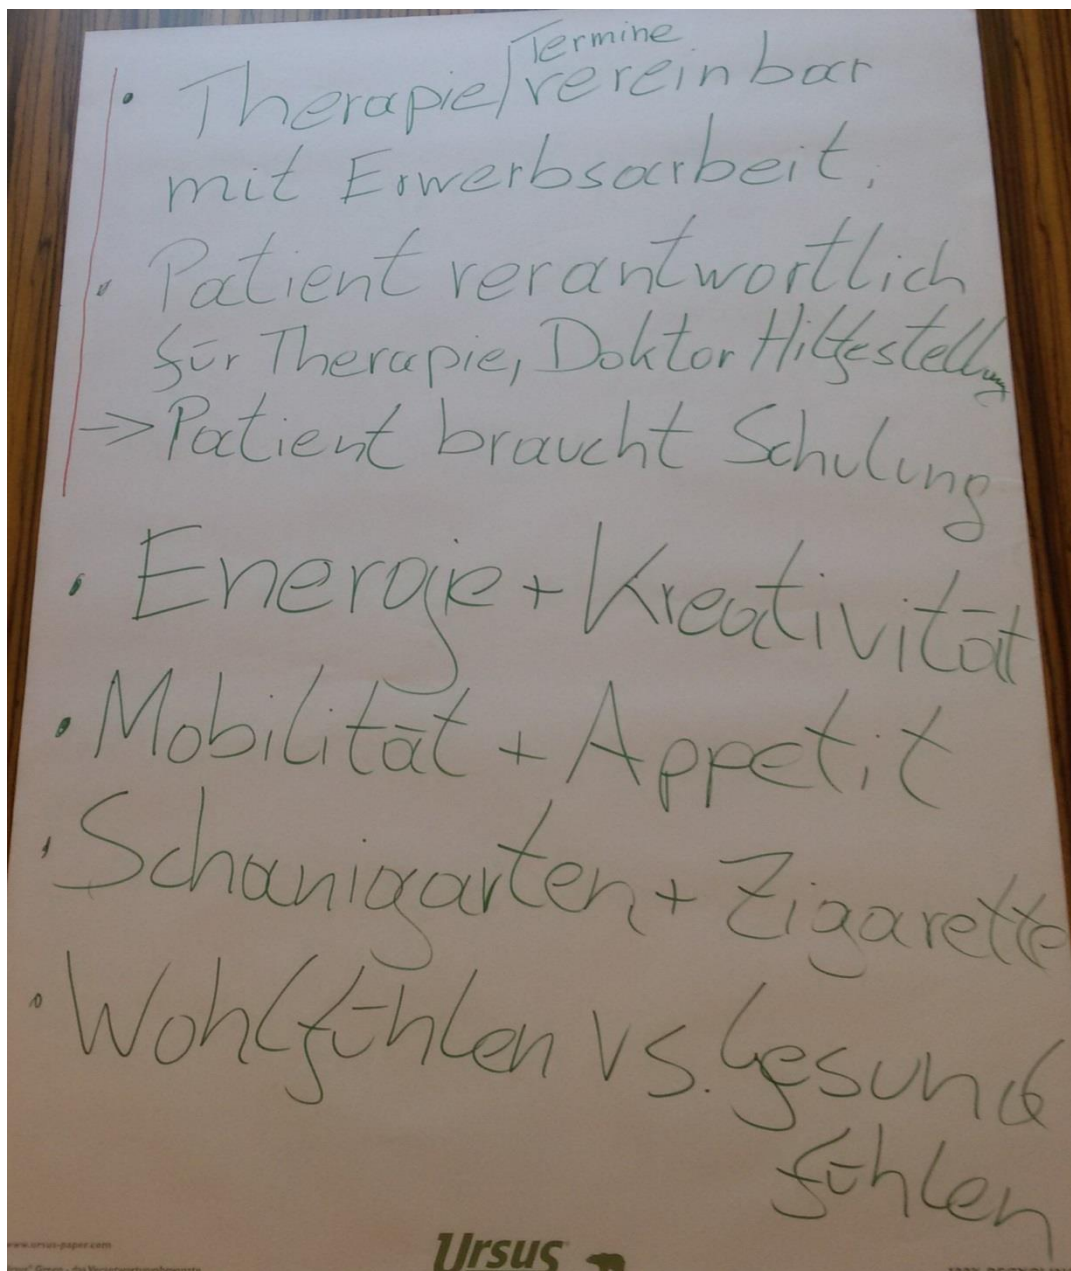 Termine
• Therapie/vereinbar
mit Erwerbsarbeit.
• Patient verantwortlich
für Therapie, Doktor Hilfestellung
→ Patient braucht Schulung
• Energie + Kreativität
• Mobilität + Appetit
• Schanigarten + Zigarette
• Wohlfühlen vs. Gesund
fühlen
www.ursus-paper.com
Ursus